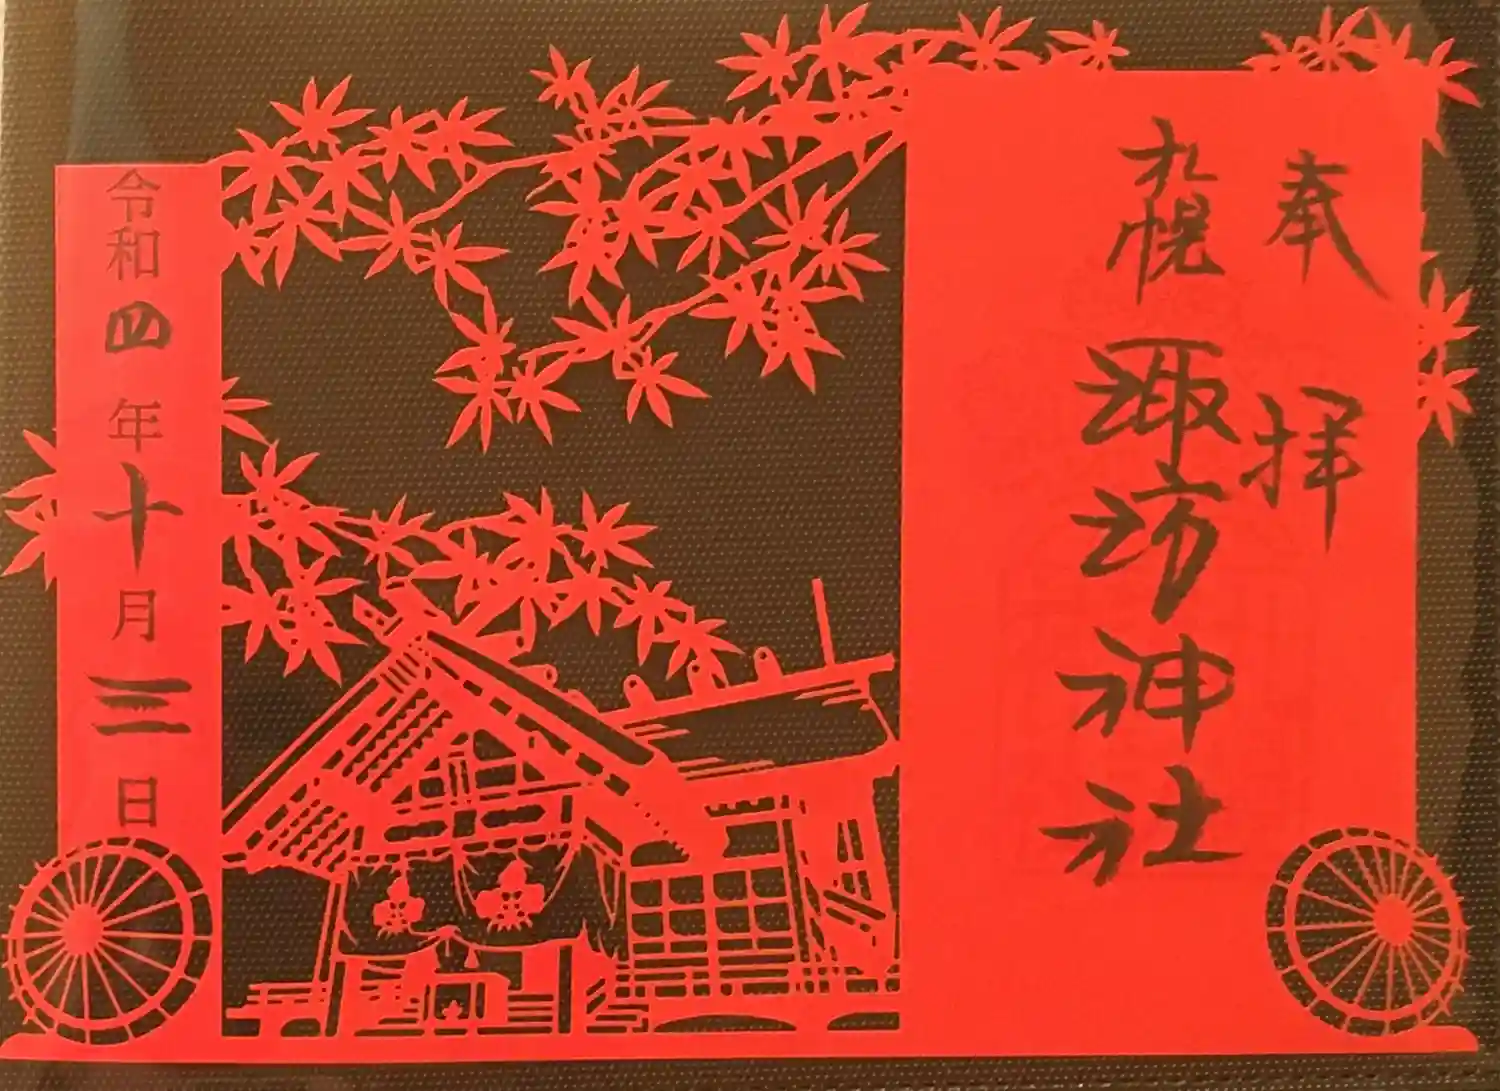 奉拝
札幌諏訪神社
令和四年十月三日